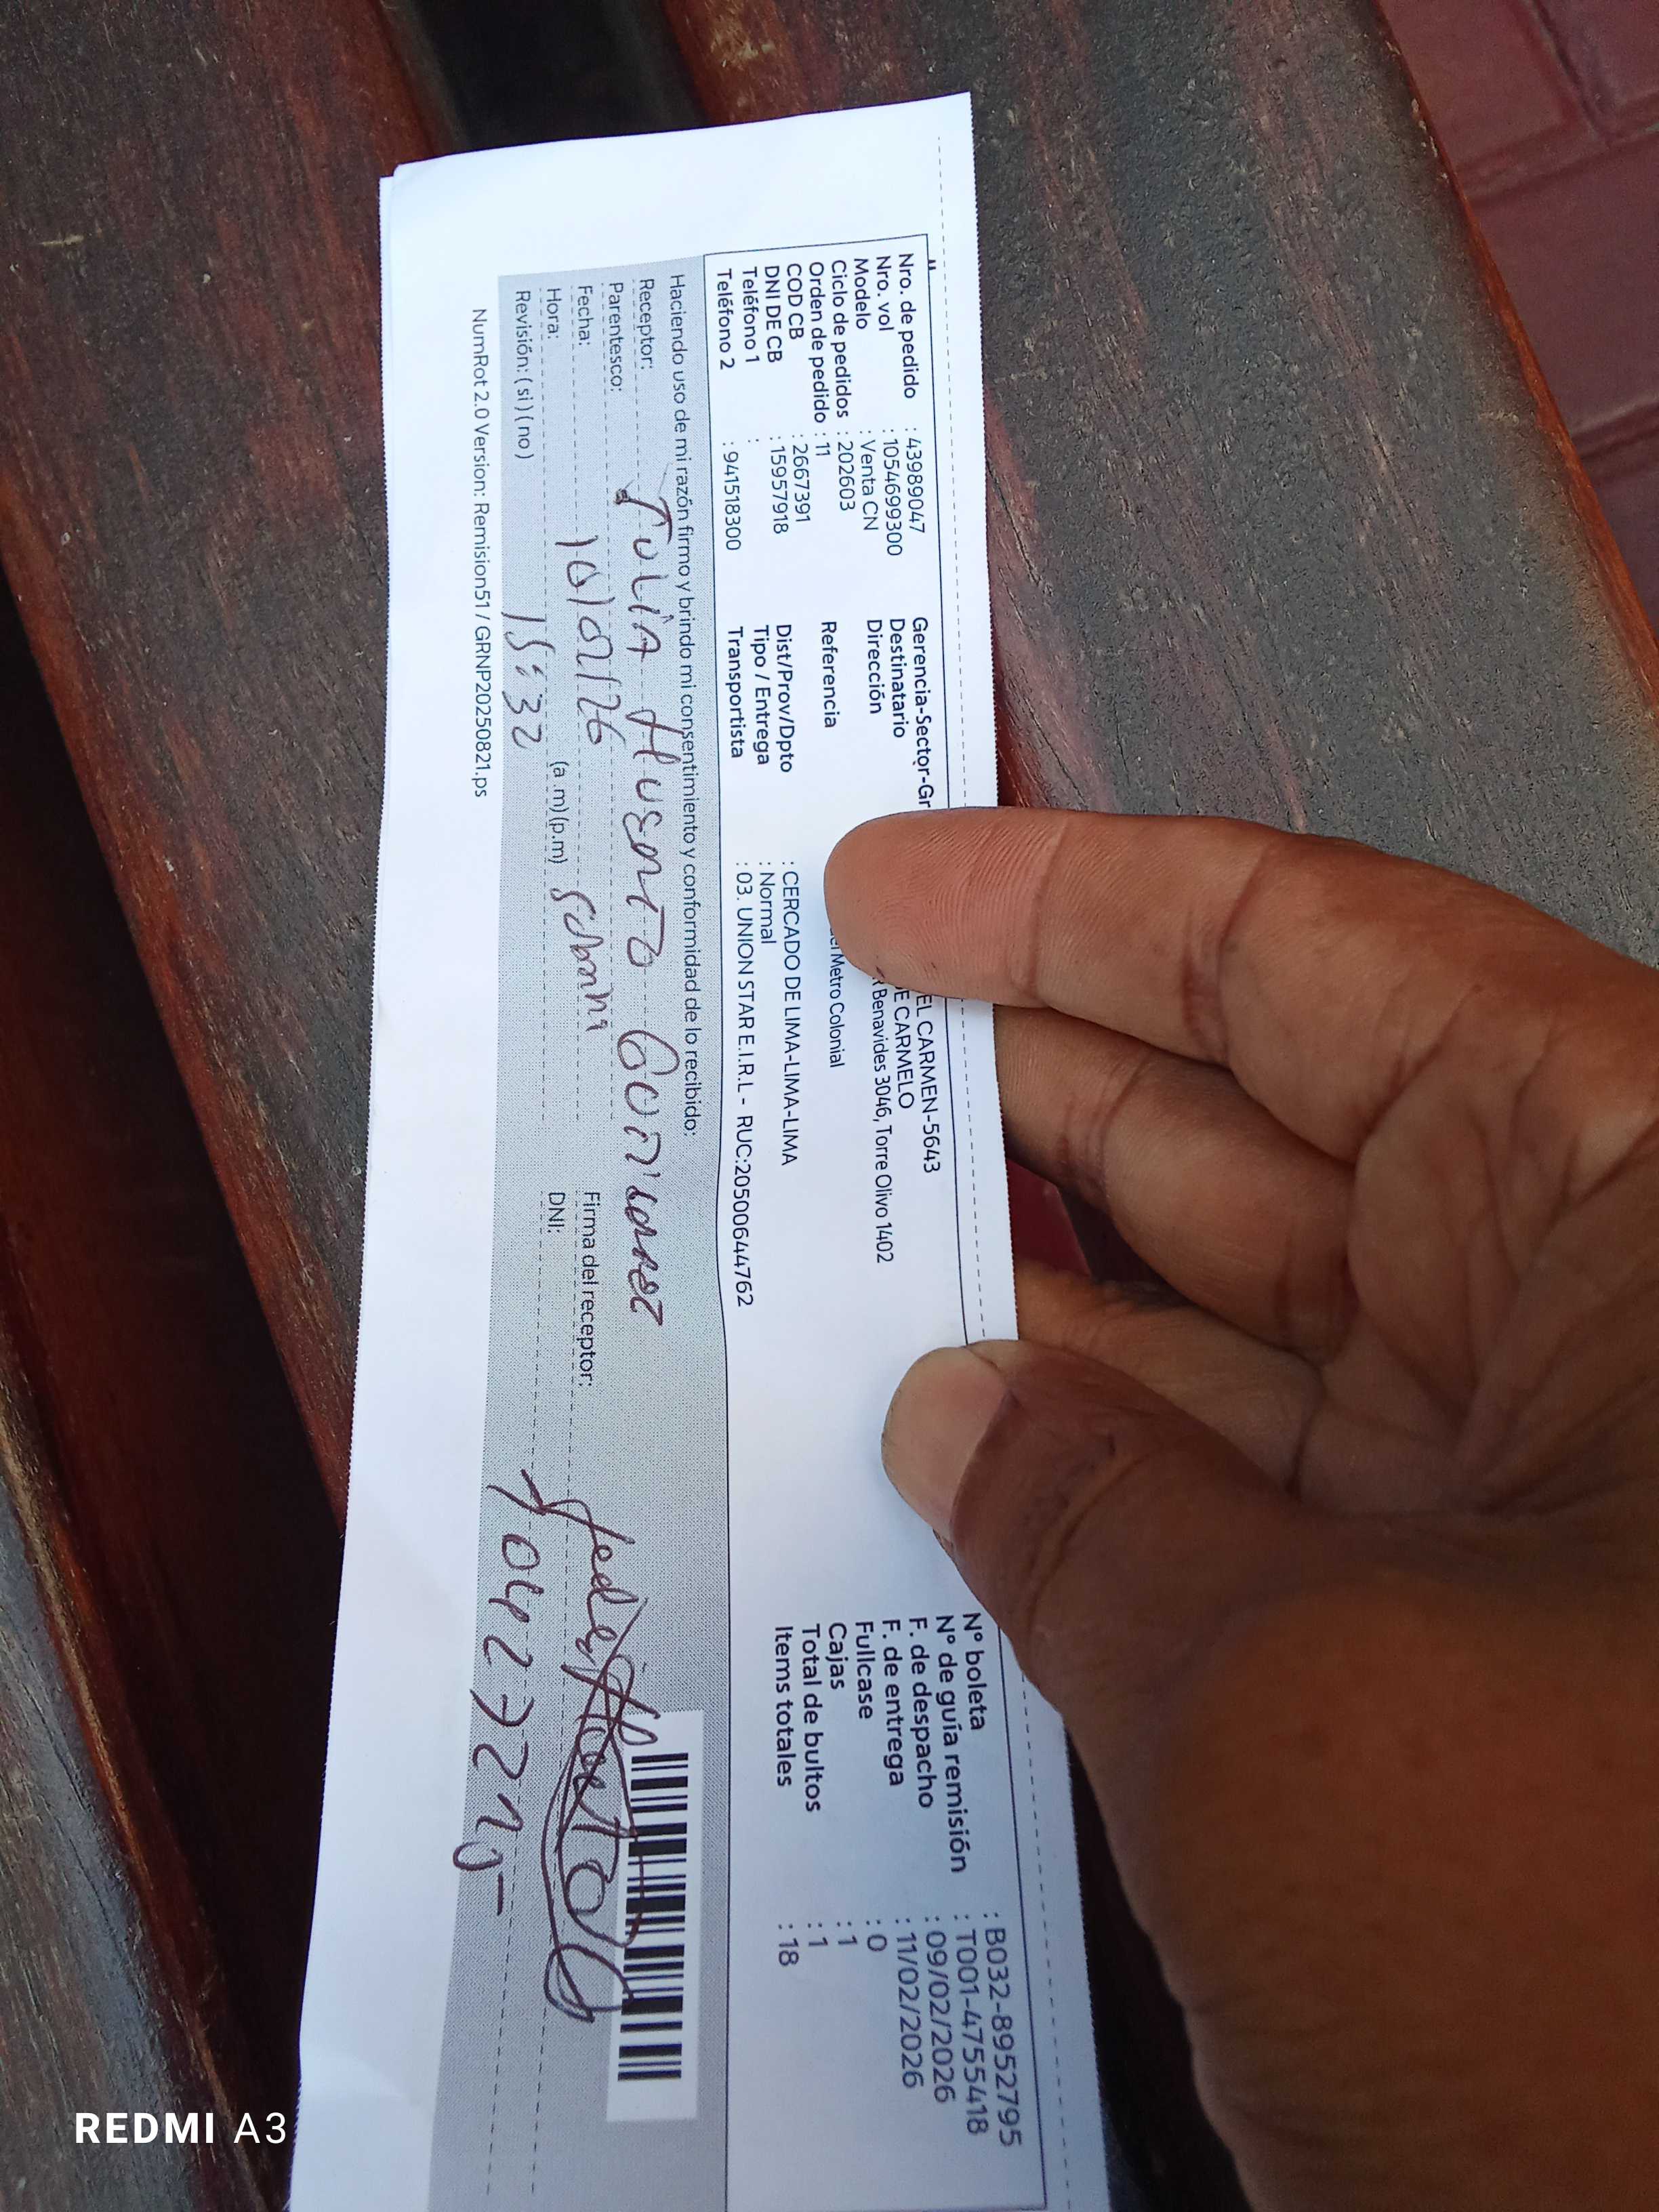 Nro. de pedido : 43989047
Nro. vol : 1054699300
Modelo : Venta CN
Ciclo de pedidos : 202603
Orden de pedido : 11
COD CB : 2667391
DNI DE CB : 15957918
Teléfono 1 :
Teléfono 2 : 941518300
Gerencia-Sector-Gr EL CARMEN-5643
Destinatario DE CARMELO
Dirección Benavides 3046, Torre Olivo 1402
Referencia Metro Colonial
Dist/Prov/Dpto : CERCADO DE LIMA-LIMA-LIMA
Tipo / Entrega : Normal
Transportista : 03. UNION STAR E.I.R.L - RUC:20500644762
N° boleta : B032-8952795
N° de guía remisión : T001-4755418
F. de despacho : 09/02/2026
F. de entrega : 11/02/2026
Fullcase : 0
Cajas : 1
Total de bultos : 1
Items totales : 18
Haciendo uso de mi razón firmo y brindo mi consentimiento y conformidad de lo recibido:
Receptor:
Parentesco:
Fecha: 10/02/26
Hora: 15:32 (a .m) (p.m)
Revisión: ( si ) ( no )
Firma del receptor:
DNI:
NumRot 2.0 Version: Remision51 / GRNP20250821.ps
REDMI A3